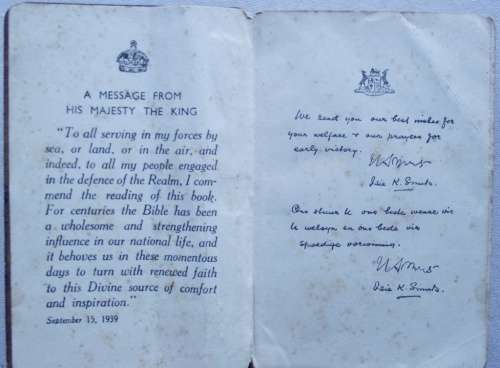 A MESSAGE FROM
HIS MAJESTY THE KING
"To all serving in my forces by
sea, or land, or in the air, and
indeed, to all my people engaged
in the defence of the Realm, I com-
mend the reading of this book.
For centuries the Bible has been
a wholesome and strengthening
influence in our national life, and
it behoves us in these momentous
days to turn with renewed faith
to this Divine source of comfort
and inspiration."
September 15, 1939
We send you our best wishes for
your welfare & our prayers for
early victory.
Isie K. Smuts.
Ons stuur u ons beste wense vir
u welsyn en ons bede vir
spoedige oorwinning.
Isie K. Smuts.